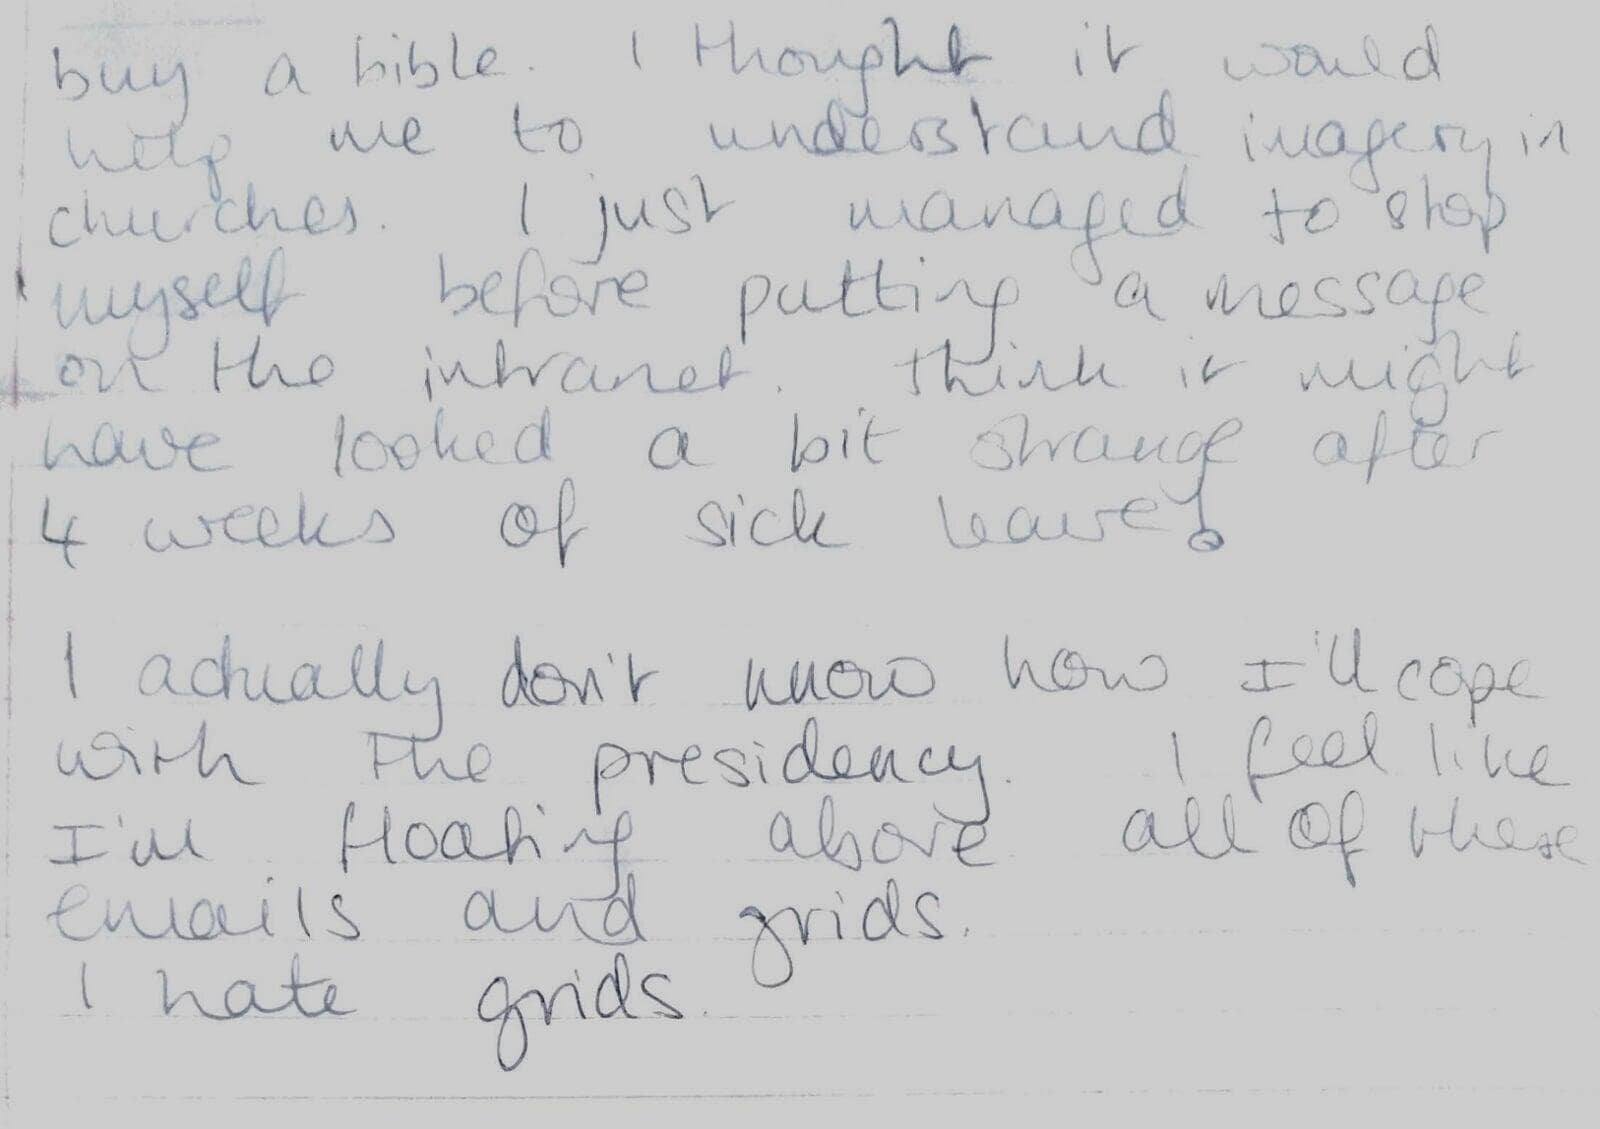 buy a bible. I thought it would
help me to understand imagery in
churches. I just managed to stop
myself before putting a message
on the intranet. Think it might
have looked a bit strange after
4 weeks of sick leave!
I actually don't know how I'll cope
with the presidency. I feel like
I'm floating above all of these
emails and grids.
I hate grids.